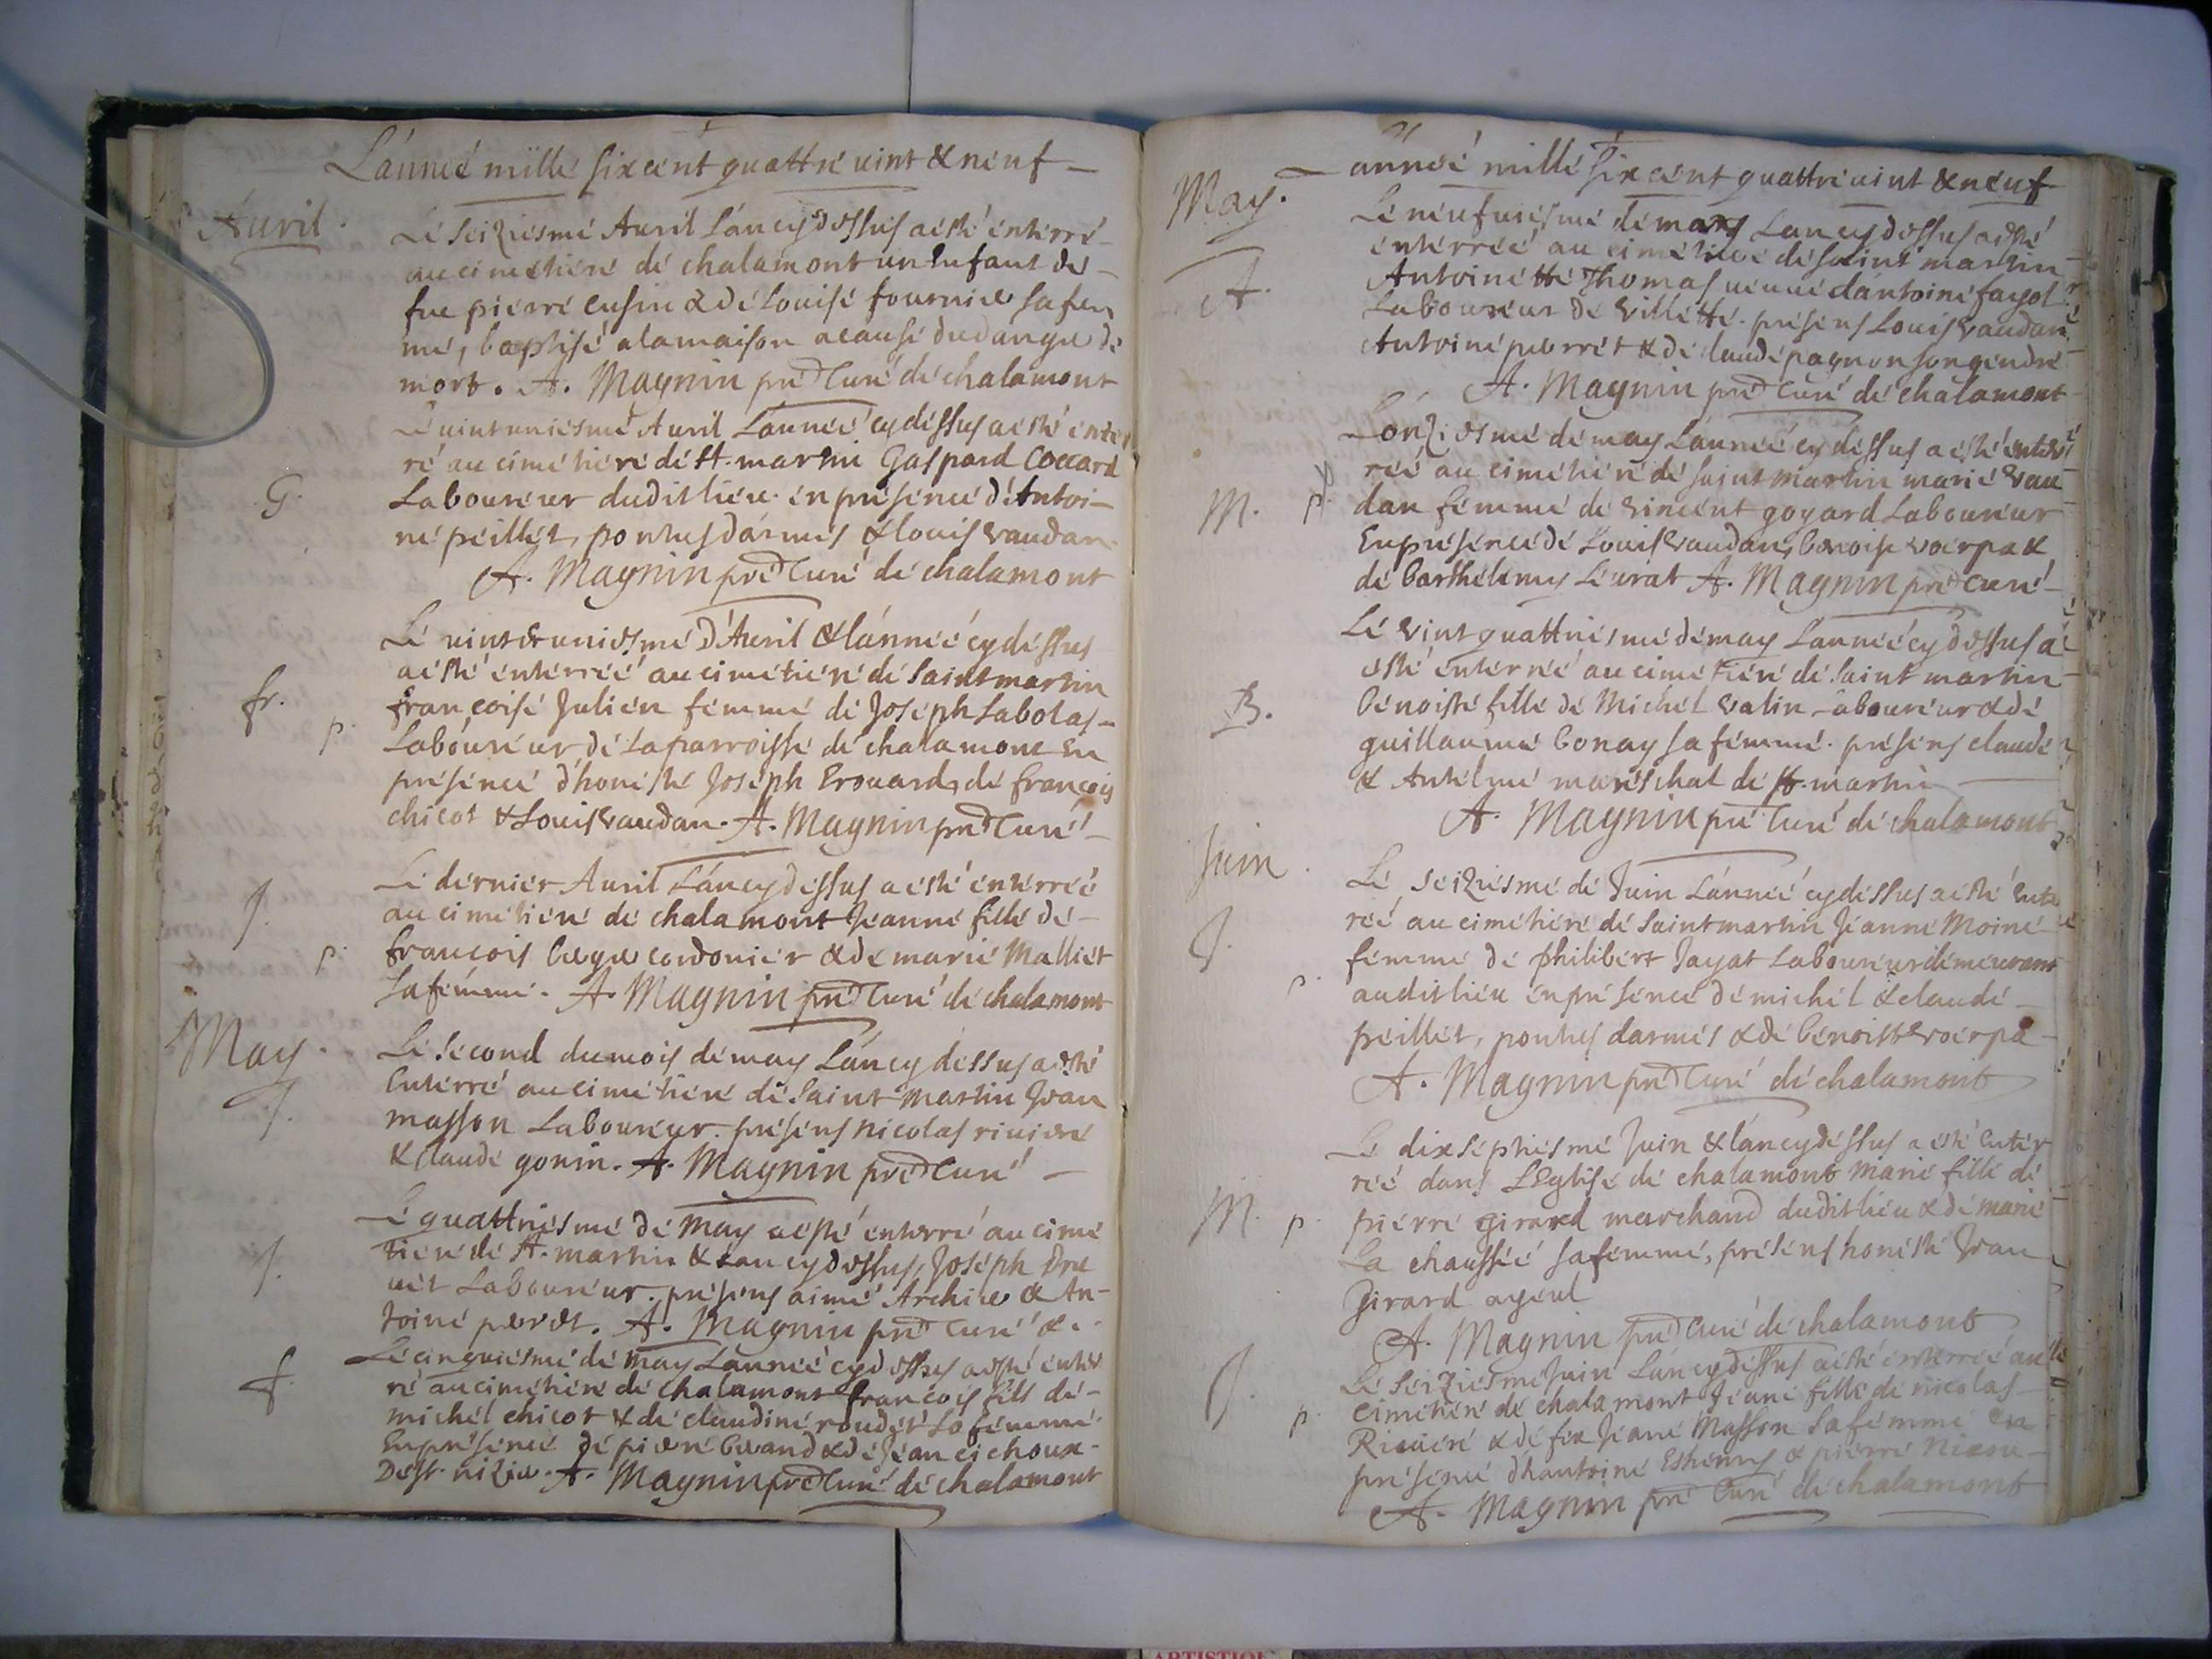 L'année mille six cent quattre uint & neuf
Auril.
Le seiziesme Auril l'an cy dessus a esté enterré
au cimetiere de chalamont un Enfant de
fue pierre cusin & de Louise fournier sa fem
me, baptisé a la maison a cause du danger de
mort. A. Magnin pre Curé de chalamont
Le uintuniesme Auril L'année cy dessus a esté enter
G.
ré au cimetiere de St. martin Gaspard Coccard
Laboureur dudit lieu. en présence d'Antoi-
ne peillet, ponthus darmes & louis vaudan.
A. Magnin pre Curé de chalamont
Le uint & uniesme d'Auril & l'année cy dessus
a esté enterrée au cimetiere de saint martin
fr.
p.
françoise Julien femme de Joseph Labolas
Laboureur de la parroisse de chalamont En
présence d'honeste Joseph Brouard, de françois
chicot & Louis vaudan. A. Magnin pre Curé
Le dernier Auril L'an cy dessus a esté enterrée
J.
au cimetiere de chalamont Jeanne fille de
p.
françois cordonier & de marie Malliet
sa femme. A. Magnin pre Curé de chalamont
May.
Le second du mois de may L'an cy dessus a esté
J.
Enterré au cimetiere de saint martin Jean
masson Laboureur. présens nicolas riuiere
& claude gonin. A. Magnin pre Curé
Le quattriesme de may a esté enterré au cime
J.
tiere de St. martin & L'an cy dessus, Joseph Dru
uet Laboureur. présens aimé Archier & An-
toine perret. A. Magnin pre curé &.
Le cinquiesme de may L'année cy dessus a esté enter
f.
ré au cimetiere de chalamont françois fils de
michel chicot & de claudine roudet sa femme.
En présence de pierre & de Jean cichoux
De st. nizier. A. Magnin pre Curé de chalamont
année mille six cent quattre uint & neuf
May.
Le neufuiesme de may L'an cy dessus a esté
enterrée au cimetiere de saint martin
A.
Antoinette Thomas ueuue d'antoine fayol
Laboureur de Villette. présens Louis vaudan
Antoine perret & de claude pagnon son gendre
A. Magnin pre Curé de chalamont
L'onziesme de may L'année cy dessus a esté enter
rée au cimetiere de saint martin marie vau
M.
p.
dan femme de vincent goyard Laboureur
En présence de Louis vaudan, benoist voerpa &
de barthelemy Leurat A. Magnin pre curé
Le vint quattriesme de may L'année cy dessus a
esté enterrée au cimetiere de saint martin
B.
bénoiste fille de Michel valin Laboureur & de
guillaume bonay sa femme. présens claude
& Antelme mareschal de st. martin
A. Magnin pre Curé de chalamont
Juin.
Le seiziesme de Juin L'année cy dessus a esté Enter
J.
rée au cimetiere de saint martin Jeanne Moine
femme de philibert Jayat Laboureur demeurant
p.
audit lieu en présence de michel & claude
peillet, ponthus darmes & de benoist voerpa
A. Magnin pre Curé de chalamont
Le dix septiesme Juin & l'an cy dessus a esté Enter
rée dans L'Eglise de chalamont marie fille de
M. p.
pierre girard marchand dudit lieu & de marie
La chaussée sa femme, présens honeste Jean
Girard ayeul
A. Magnin pre curé de chalamont
Le seiziesme Juin L'an cy dessus a esté enterrée au
J.
cimetiere de chalamont Jeane fille de nicolas
p.
Riuiere & de feu Jeane Masson sa femme en
présence d'hantoine Estienne & pierre
A. Magnin pre Curé de chalamont